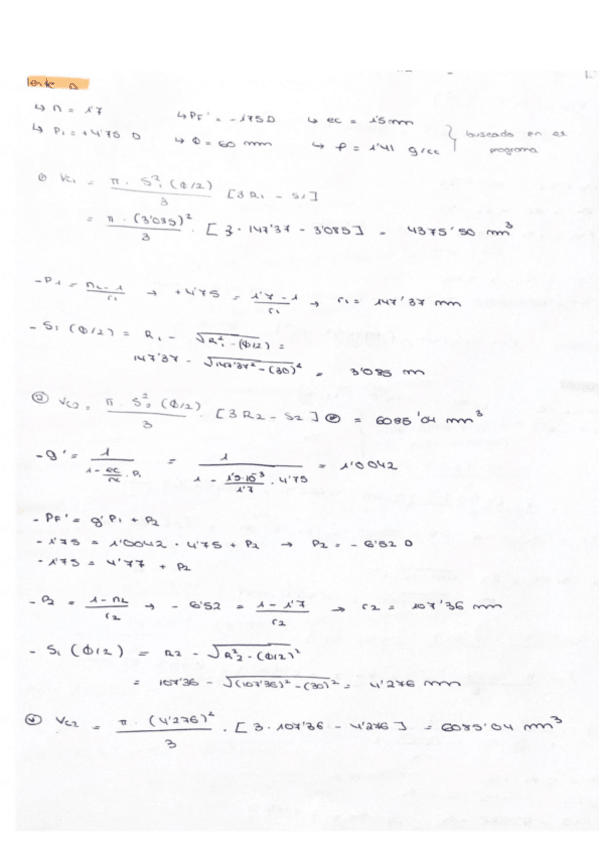 lente D
↳ n = 1'7 ↳ PF' = -1'75 D ↳ ec = 1'5 mm
↳ P1 = +4'75 D ↳ Φ = 60 mm ↳ ρ = 1'41 g/cc } buscado en el programa
① Vc1 = π · S1² (Φ/2) / 3 [3R1 - S1]
= π · (3'085)² / 3 · [3 · 147'37 - 3'085] = 4375'50 mm³
- P1 = nL - 1 / r1 → +4'75 = 1'7 - 1 / r1 → r1 = 147'37 mm
- S1 (Φ/2) = R1 - √R1² - (Φ/2) =
147'37 - √147'37² - (30)² = 3'085 m
② Vc2 = π · S2² (Φ/2) / 3 · [3R2 - S2] ⊛ = 6085'04 mm³
- g' = 1 / 1 - ec/nL · P1 = 1 / 1 - 1'5·10⁻³/1'7 · 4'75 = 1'0042
- PF' = g' P1 + P2
- 1'75 = 1'0042 · 4'75 + P2 → P2 = - 6'52 D
- 1'75 = 4'77 + P2
- P2 = 1 - nL / r2 → - 6'52 = 1 - 1'7 / r2 → r2 = 107'36 mm
- S1 (Φ/2) = R2 - √R2² - (Φ/2)²
= 107'36 - √(107'36)² - (30)² = 4'276 mm
⊛ Vc2 = π · (4'276)² / 3 · [3 · 107'36 - 4'276] = 6085'04 mm³